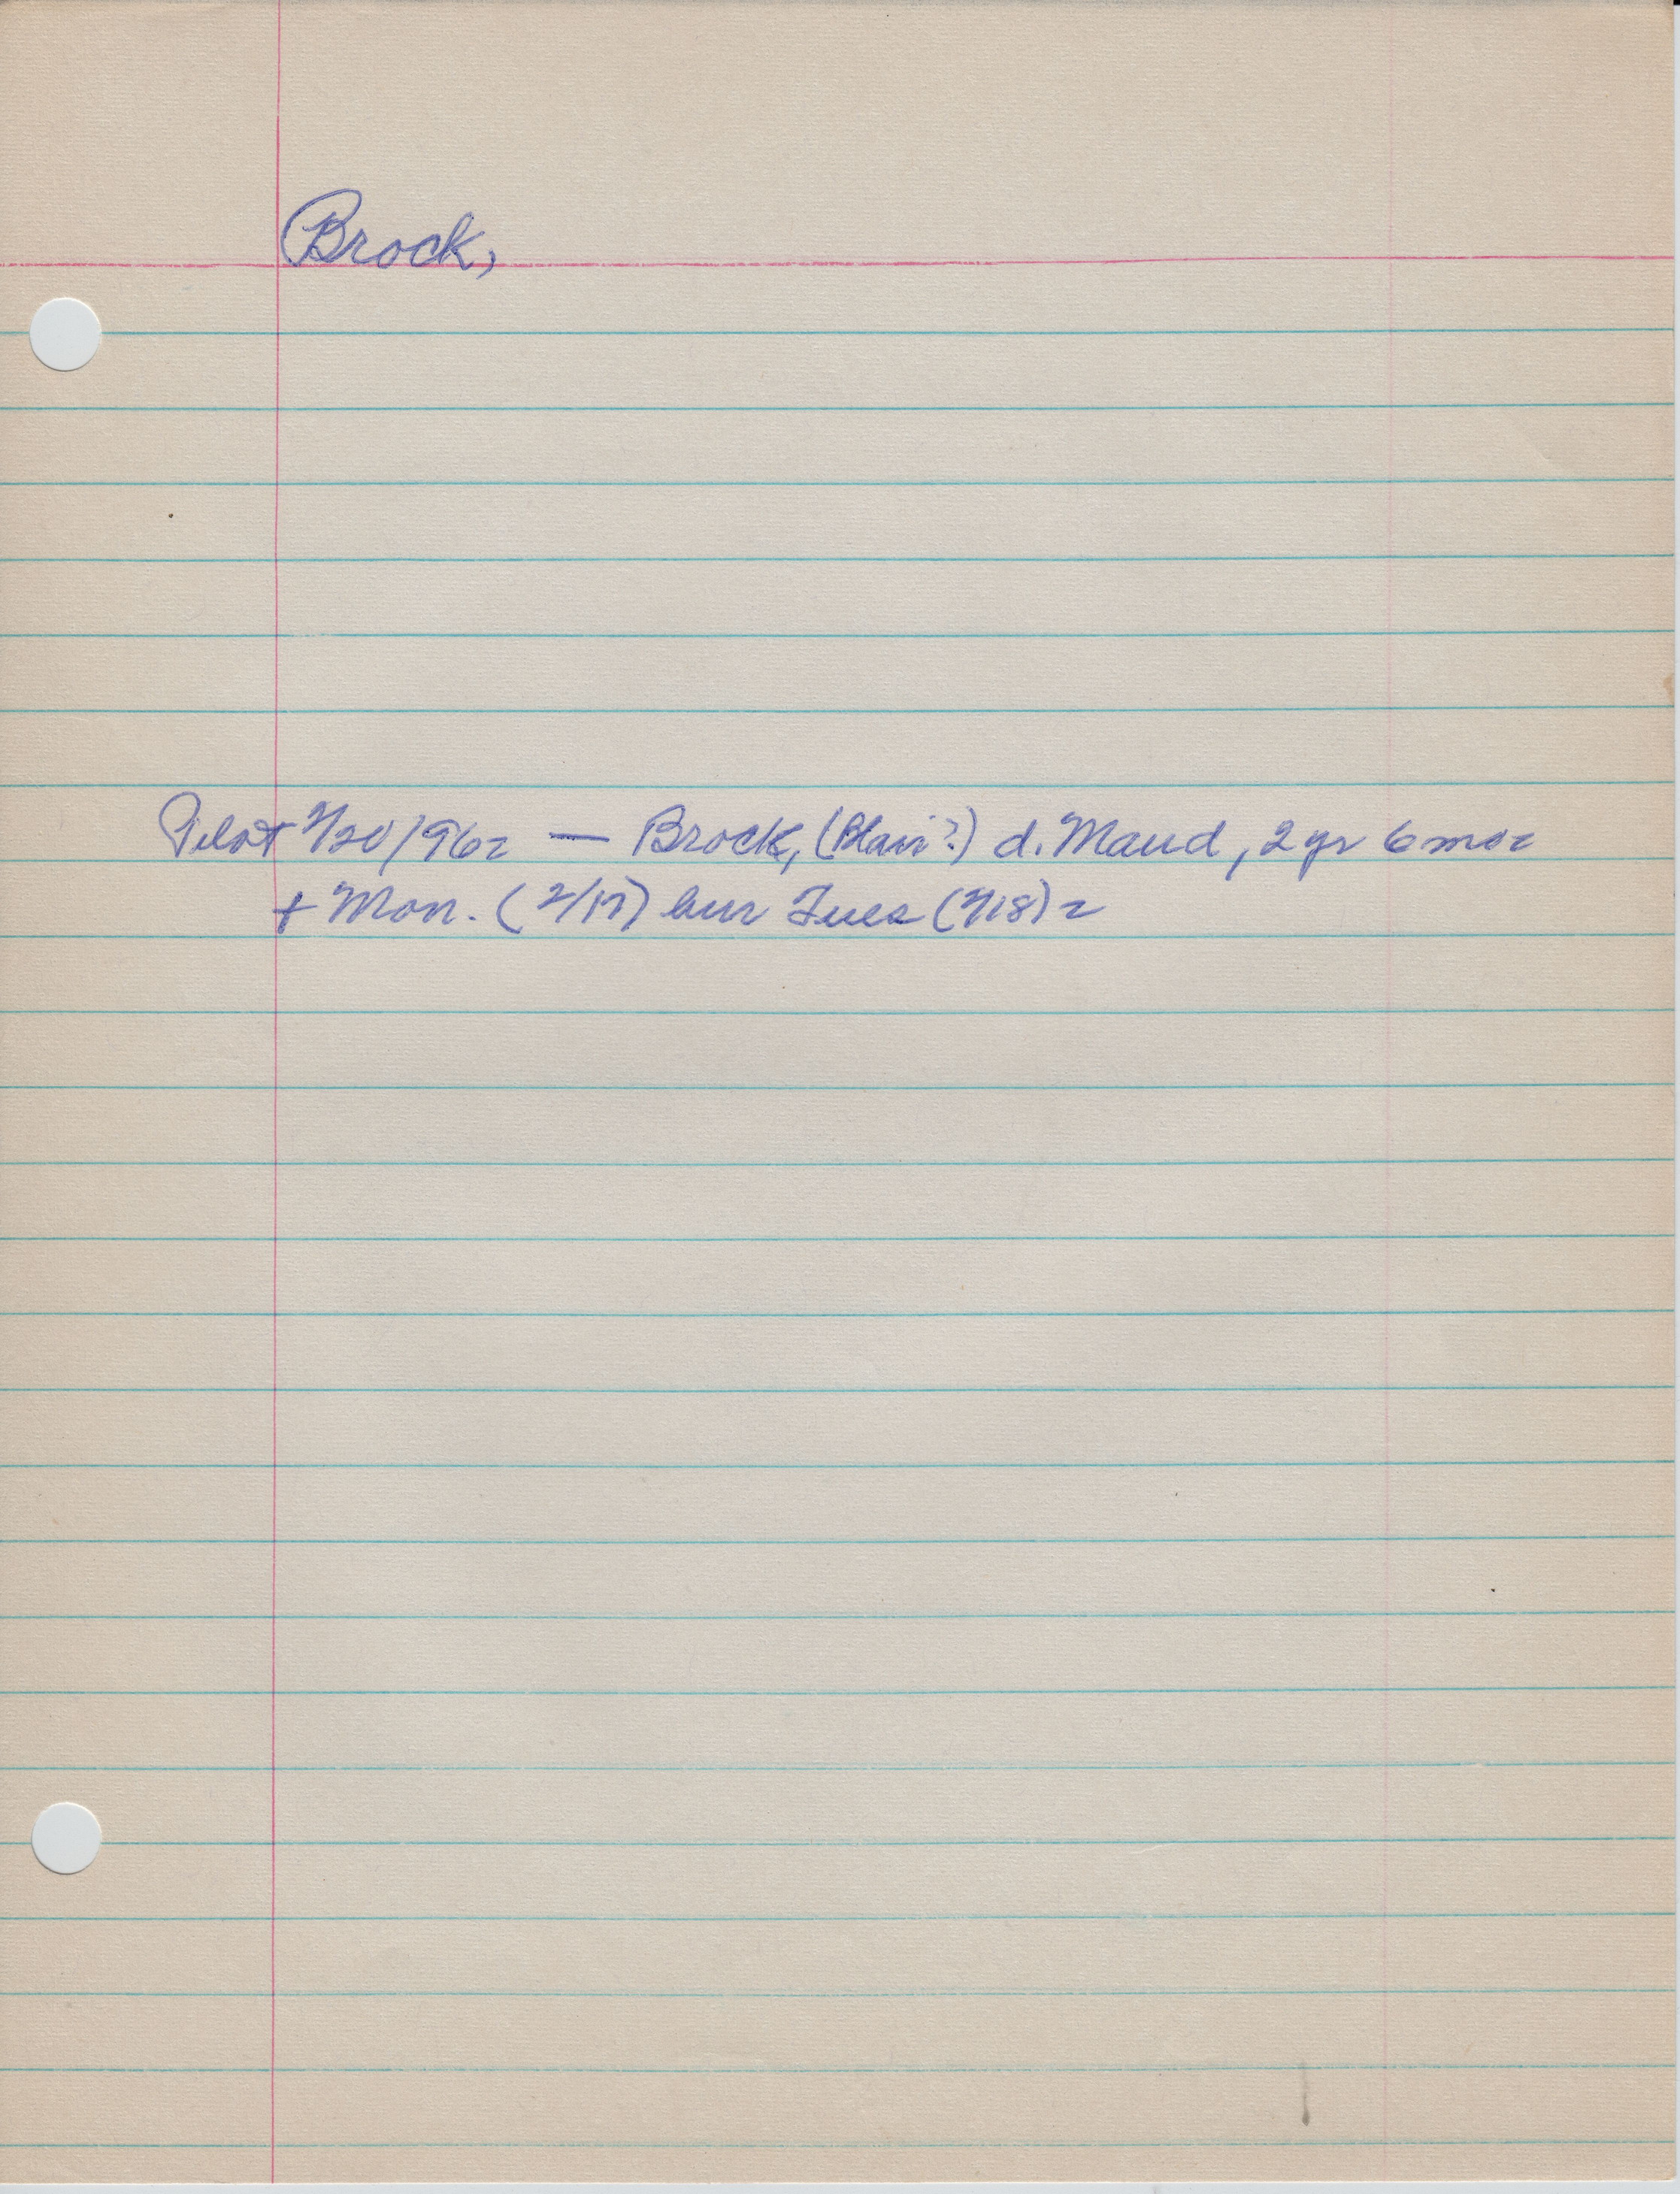 Brock,
Pilot 2/20/96 — Brock, (Blair?) d. Maud, 2 yr 6 mos
+ Mon. (2/17) bur Tues (2/18)